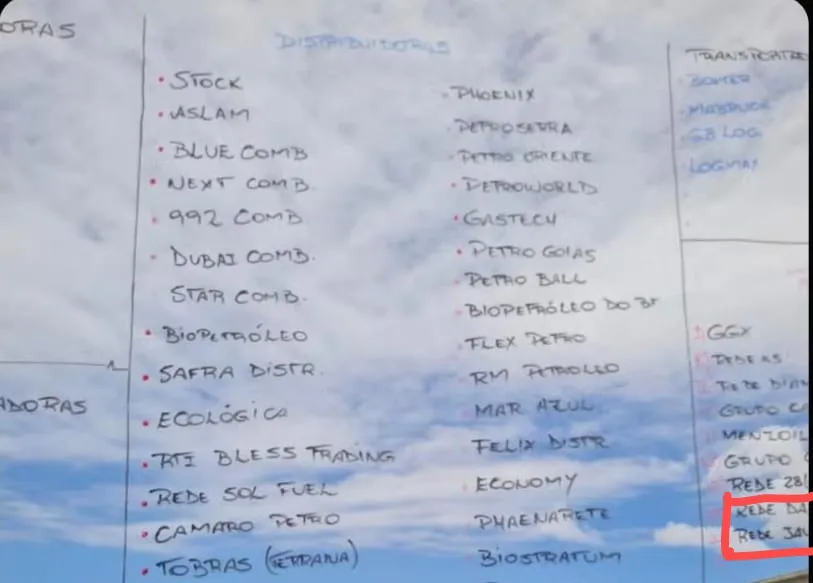 ORAS
DISTRIBUIDORAS
• STOCK
• ASLAM
• BLUE COMB
• NEXT COMB.
• 992 COMB
• DUBAI COMB.
STAR COMB.
• BIOPETRÓLEO
• SAFRA DISTR.
• ECOLÓGICA
• RTI BLESS TRADING
• REDE SOL FUEL
• CAMARO PETRO
• TOBRAS (TERRANA)
• PHOENIX
PETROSERRA
• PETRO ORIENTE
• PETROWORLD
• GASTECH
• PETRO GOIAS
PETRO BALL
BIOPETRÓLEO DO BR
FLEX PETRO
RM PETROLEO
MAR AZUL
FELIX DISTR
ECONOMY
PHAENARETE
BIOSTRATUM
TRANSPORTAD
GB LOG
GGX
REDE
REDE
GRUPO
GRUPO
REDE 28
REDE DA
REDE
ADORAS